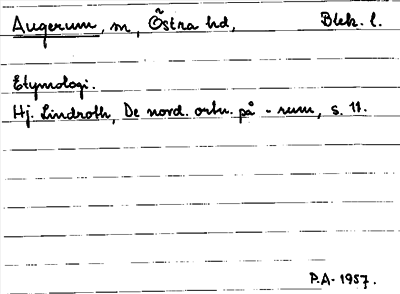 Augerum, m, Östra hd, Blek. l.
Etymologi.
Hj. Lindroth, De nord. ortn. på - rum, s. 11.
P.A. 1957.